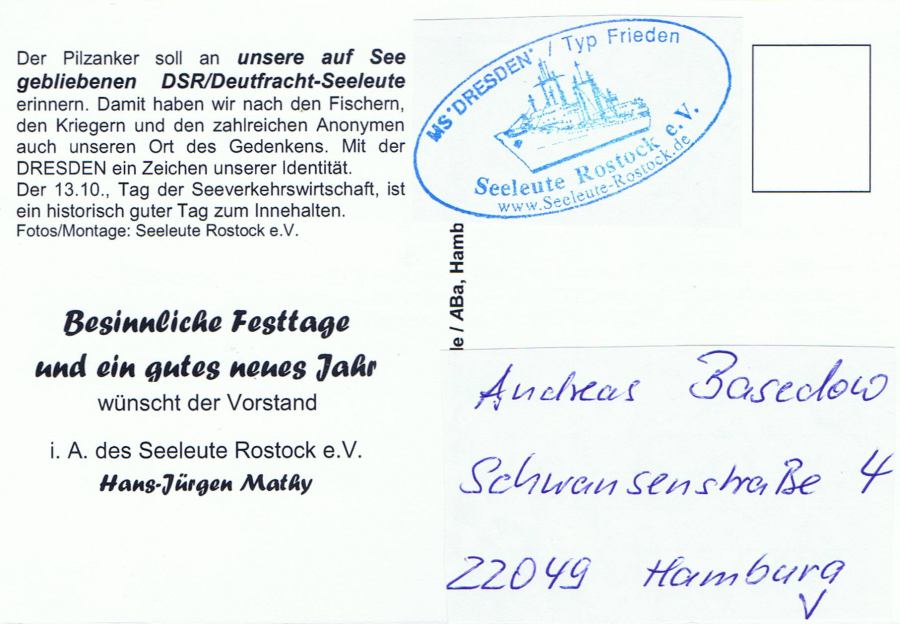 Der Pilzanker soll an unsere auf See
gebliebenen DSR/Deutfracht-Seeleute
erinnern. Damit haben wir nach den Fischern,
den Kriegern und den zahlreichen Anonymen
auch unseren Ort des Gedenkens. Mit der
DRESDEN ein Zeichen unserer Identität.
Der 13.10., Tag der Seeverkehrswirtschaft, ist
ein historisch guter Tag zum Innehalten.
Fotos/Montage: Seeleute Rostock e.V.
Besinnliche Festtage
und ein gutes neues Jahr
wünscht der Vorstand
i. A. des Seeleute Rostock e.V.
Hans-Jürgen Mathy
MS "DRESDEN" / Typ Frieden
Seeleute Rostock e.V.
www.Seeleute-Rostock.de
le / ABa, Hamb
Andreas Basedow
Schwansenstraße 4
22049 Hamburg